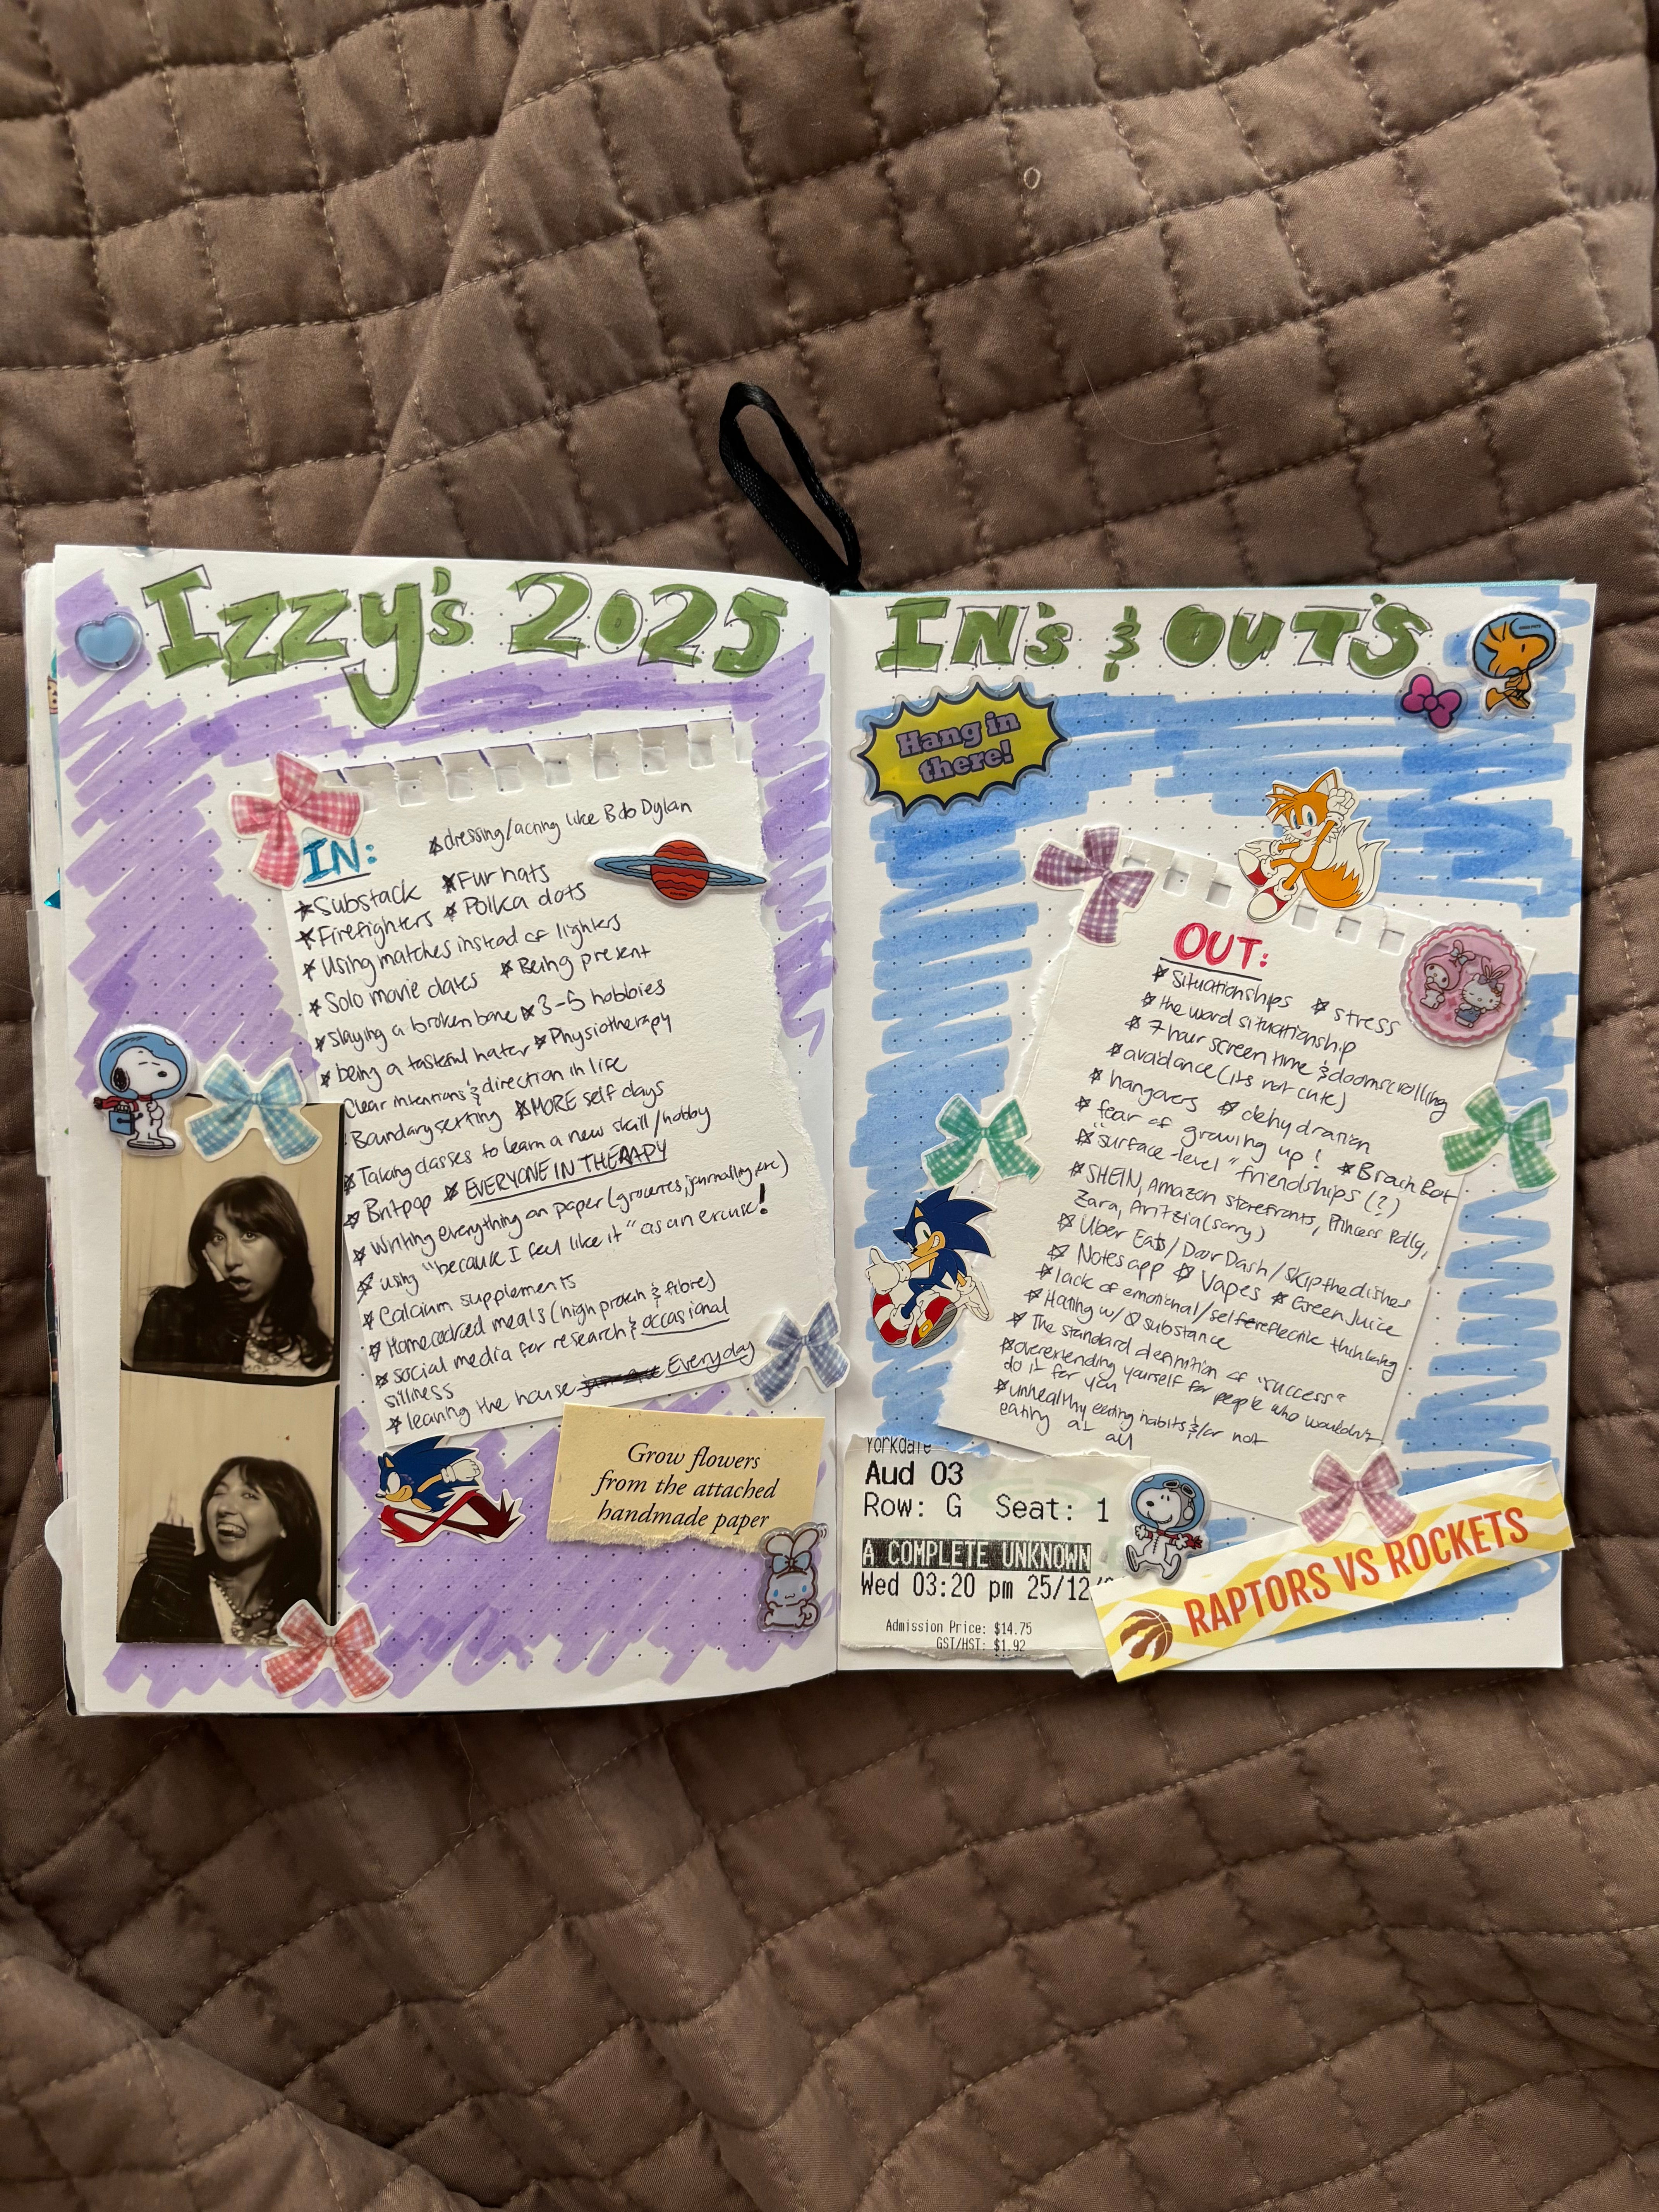 Izzy's 2025
IN:
★dressing/acting like Bob Dylan
★Substack ★Fur hats
★Firefighters ★Polka dots
★Using matches instead of lighters
★Solo movie dates ★Being present
★Slaying a broken bone ★3-5 hobbies
★being a tasteful hater ★Physiotherapy
Clear intentions & direction in life
Boundary setting ★MORE self days
★Taking classes to learn a new skill/hobby
★Britpop ★EVERYONE IN THERAPY
★Writing everything on paper (groceries, journalling, etc)
★using "because I feel like it" as an excuse!
★Calcium supplements
★Homecooked meals (high protein & fibre)
★social media for research & occasional
silliness
★leaving the house Everyday
Grow flowers
from the attached
handmade paper
IN's & OUT'S
Hang in
there!
OUT:
★Situationships ★stress
★the word situationship
★7 hour screen time & doomscrolling
★avoidance (its not cute)
★hangovers ★dehydration
★fear of growing up! ★Brach Bot
★"surface-level" friendships (?)
★SHEIN, Amazon storefronts, Princess Polly,
Zara, Aritzia (sorry)
★Uber Eats/Door Dash/Skipthedishes
★Notes app ★Vapes ★Green Juice
★lack of emotional/self reflective thinking
★Hating w/ 0 substance
★The standard definition of "success"
★overextending yourself for people who wouldn't
do it for you
★unhealthy eating habits &/or not
eating at all
Yorkdale
Aud 03
Row: G Seat: 1
A COMPLETE UNKNOWN
Wed 03:20 pm 25/12/
Admission Price: $14.75
GST/HST: $1.92
RAPTORS VS ROCKETS